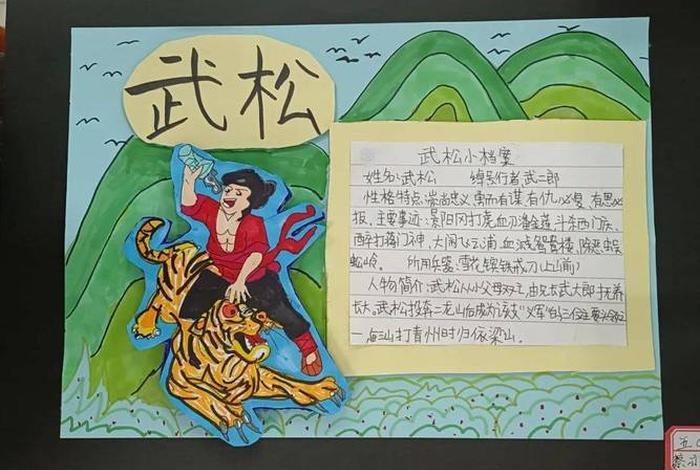 武松
武松小档案
姓名:武松 绰号:行者 武二郎
性格特点:崇尚忠义 勇而有谋 有仇必复 有恩必
报。主要事迹:景阳冈打虎 血刃潘金莲 斗杀西门庆
醉打蒋门神 大闹飞云浦 血溅鸳鸯楼 除恶蜈
蚣岭。 所用兵器:雪花镔铁戒刀(上山前)
人物简介:武松从小父母双亡,由兄长武大郎抚养
长大。武松投奔二龙山后成为该支"义军"的三位主要头领之
一,三山打青州时归依梁山。
五
蔡